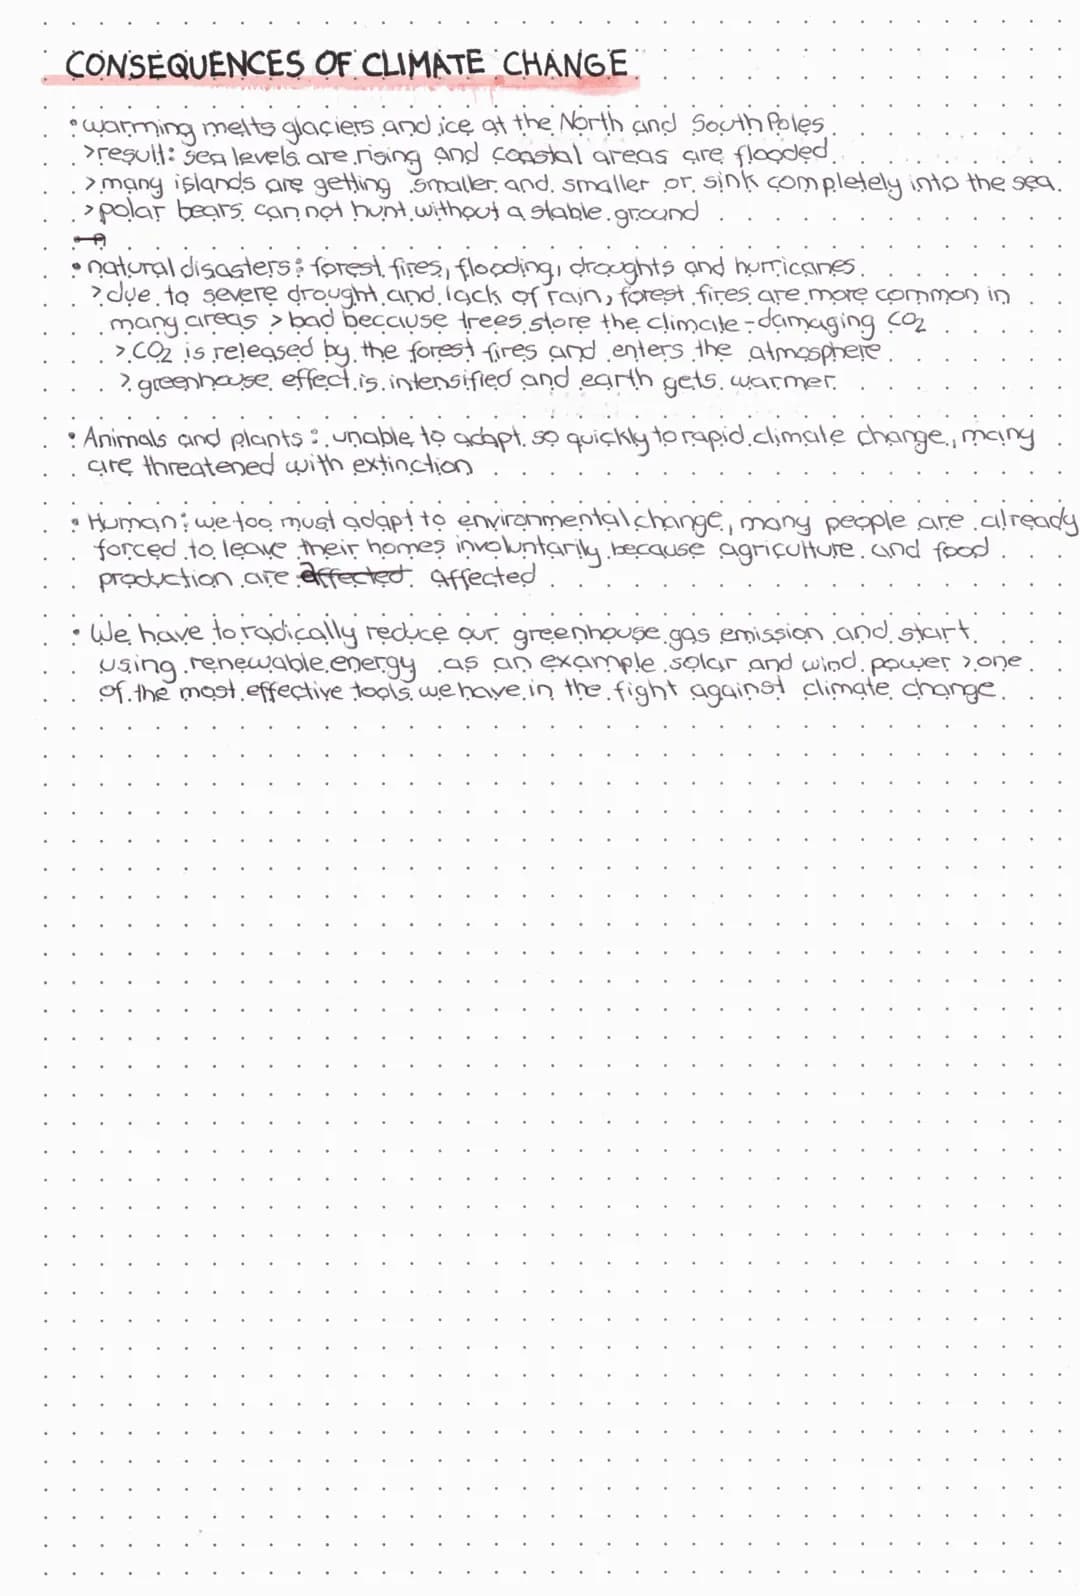 CONSEQUENCES OF CLIMATE CHANGE
• warming melts glaciers and ice at the North and South Poles.
> result: sea levels are rising and coastal areas are flooded.
> many islands are getting smaller and smaller or sink completely into the sea.
> polar bears can not hunt without a stable ground
• natural disasters: forest fires, flooding, droughts and hurricanes.
> due to severe drought and lack of rain, forest fires are more common in
many areas > bad because trees store the climate-damaging CO2
> CO2 is released by the forest fires and enters the atmosphere.
> greenhouse effect is intensified and earth gets warmer.
• Animals and plants: unable to adapt so quickly to rapid climate change, many
are threatened with extinction
• Human: we too must adapt to environmental change, many people are already
forced to leave their homes involuntarily because agriculture and food
production are affected. affected
• We have to radically reduce our greenhouse gas emission and start
using renewable energy as an example solar and wind power > one
of the most effective tools we have in the fight against climate change.